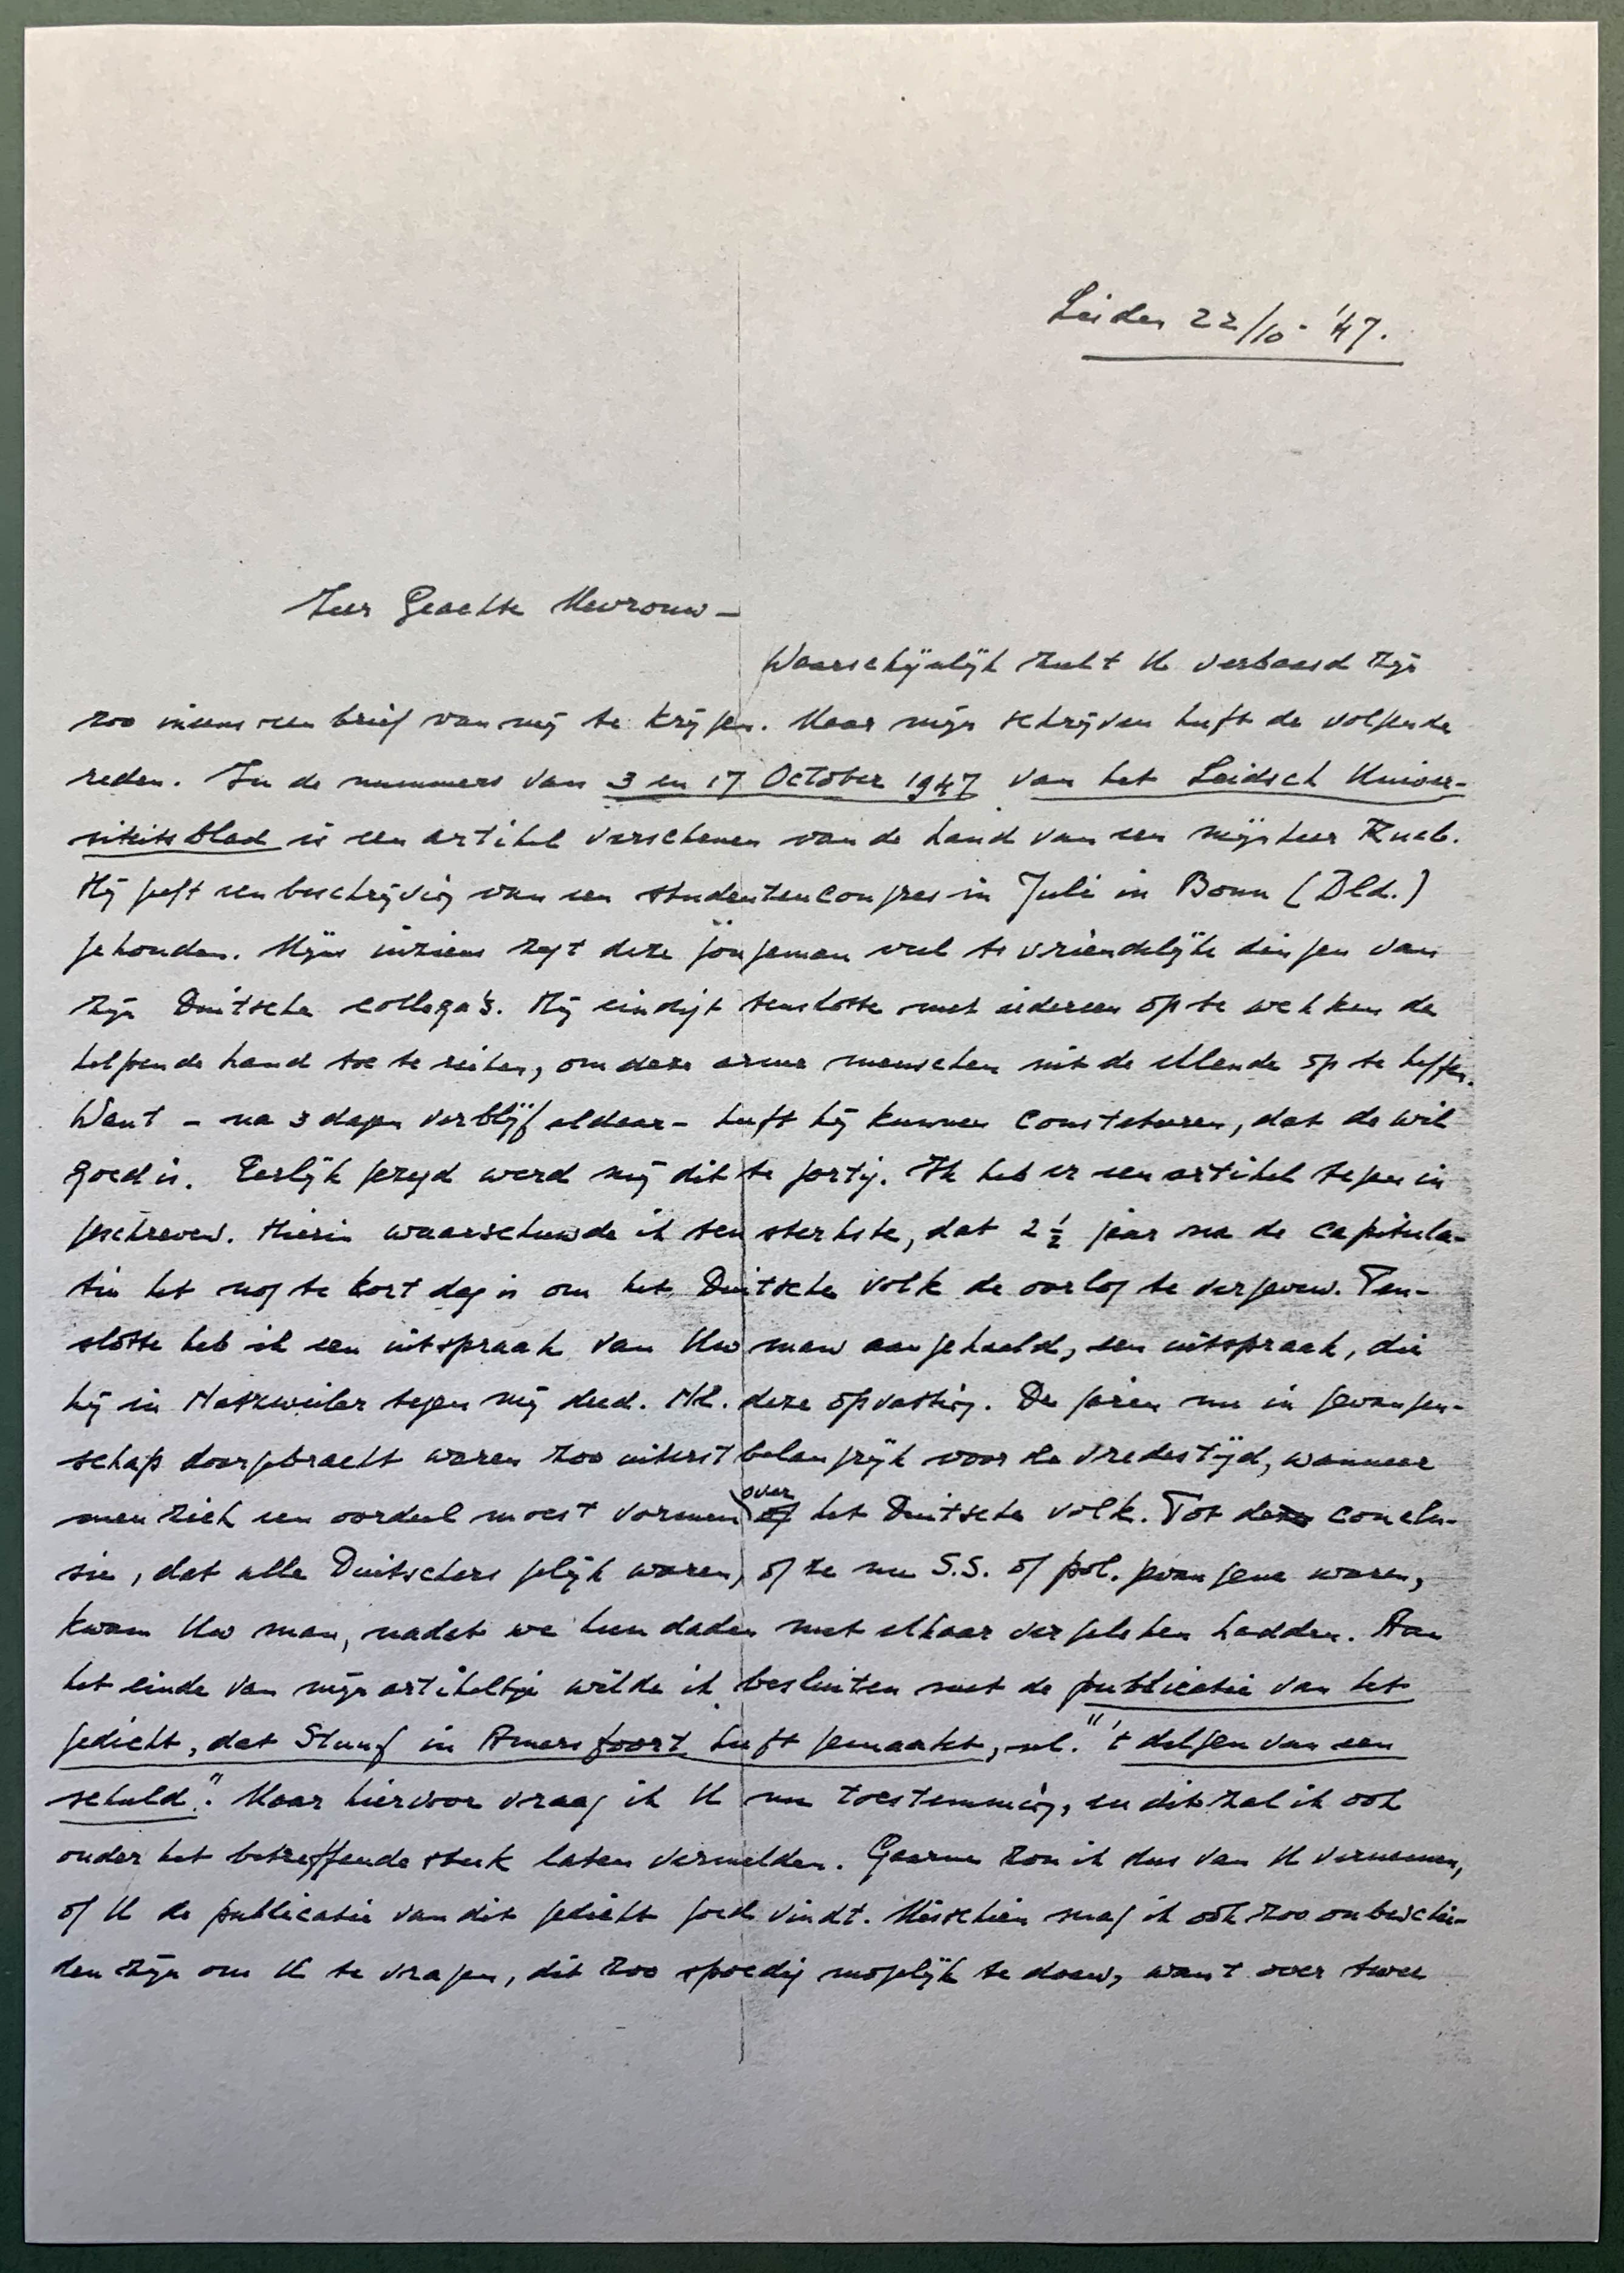 Leiden 22/10 - '47.
Zeer Geachte Mevrouw –
Waarschijnlijk zult U verbaasd zijn
zoo ineens een brief van mij te krijgen. Maar mijn schrijven heeft de volgende
reden. In de nummers van 3 en 17 October 1947 van het Leidsch Univer-
siteitsblad is een artikel verschenen van de hand van een mijnheer
Hij geft een beschrijving van een studentencongres in Juli in Bonn (Dld.)
gehouden. Mijns inziens zegt deze jongeman veel te vriendelijke dingen van
zijn Duitsche collega's. Hij eindigt tenslotte met iedereen op te wekken de
helpende hand toe te reiken, om deze arme menschen uit de ellende op te heffen.
Want – na 3 dagen verblijf aldaar – heeft hij kunnen constateeren, dat de wil
goed is. Eerlijk gezegd werd mij dit te gortig. Ik heb er een artikel tegen in
geschreven. Hierin waarschuwde ik ten sterkste, dat 2 ½ jaar na de capitula-
tie het nog te kort dag is om het Duitsche volk de oorlog te vergeven. Ten-
slotte heb ik een uitspraak van Uw man aangehaald, een uitspraak, die
hij in Natzweiler tegen mij deed. Nl. deze opvatting. De jaren nu in gevangen-
schap doorgebracht waren zoo uiterst belangrijk voor de vredestijd, wanneer
men zich een oordeel moest vormen over het Duitsche volk. Tot deze conclu-
sie, dat alle Duitschers gelijk waren, of ze nu S.S. of pol. gevangene waren,
kwam Uw man, nadat we hun daden met elkaar vergeleken hadden. Aan
het einde van mijn artikeltje wilde ik besluiten met de publicatie van het
gedicht, dat Stuuf in Amersfoort heeft gemaakt, nl. "'t delgen van een
schuld". Maar hiervoor vraag ik U nu toestemming, en dit zal ik ook
onder het betreffende stuk laten vermelden. Gaarne zou ik dus van U vernemen,
of U de publicatie van dit gedicht goed vindt. Misschien mag ik ook zoo onbeschei-
den zijn om U te vragen, dit zoo spoedig mogelijk te doen, want over twee